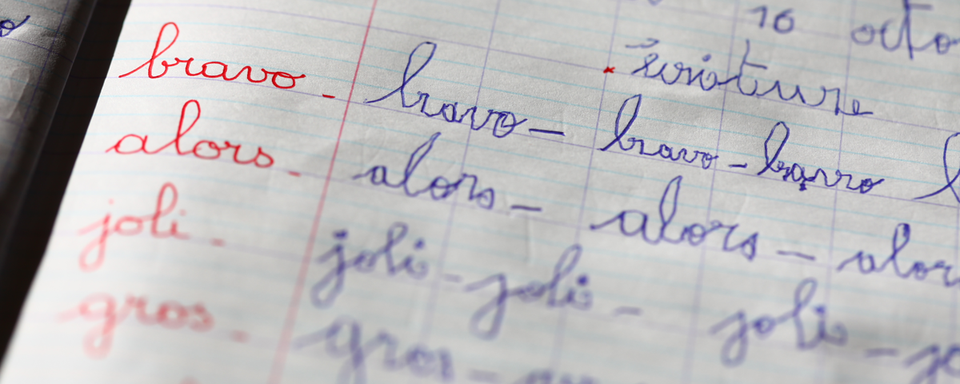 16 octo
écriture
bravo - bravo - bravo - bravo
alors - alors - alors - alor
joli - joli - joli - joli - jo
gros - gros -